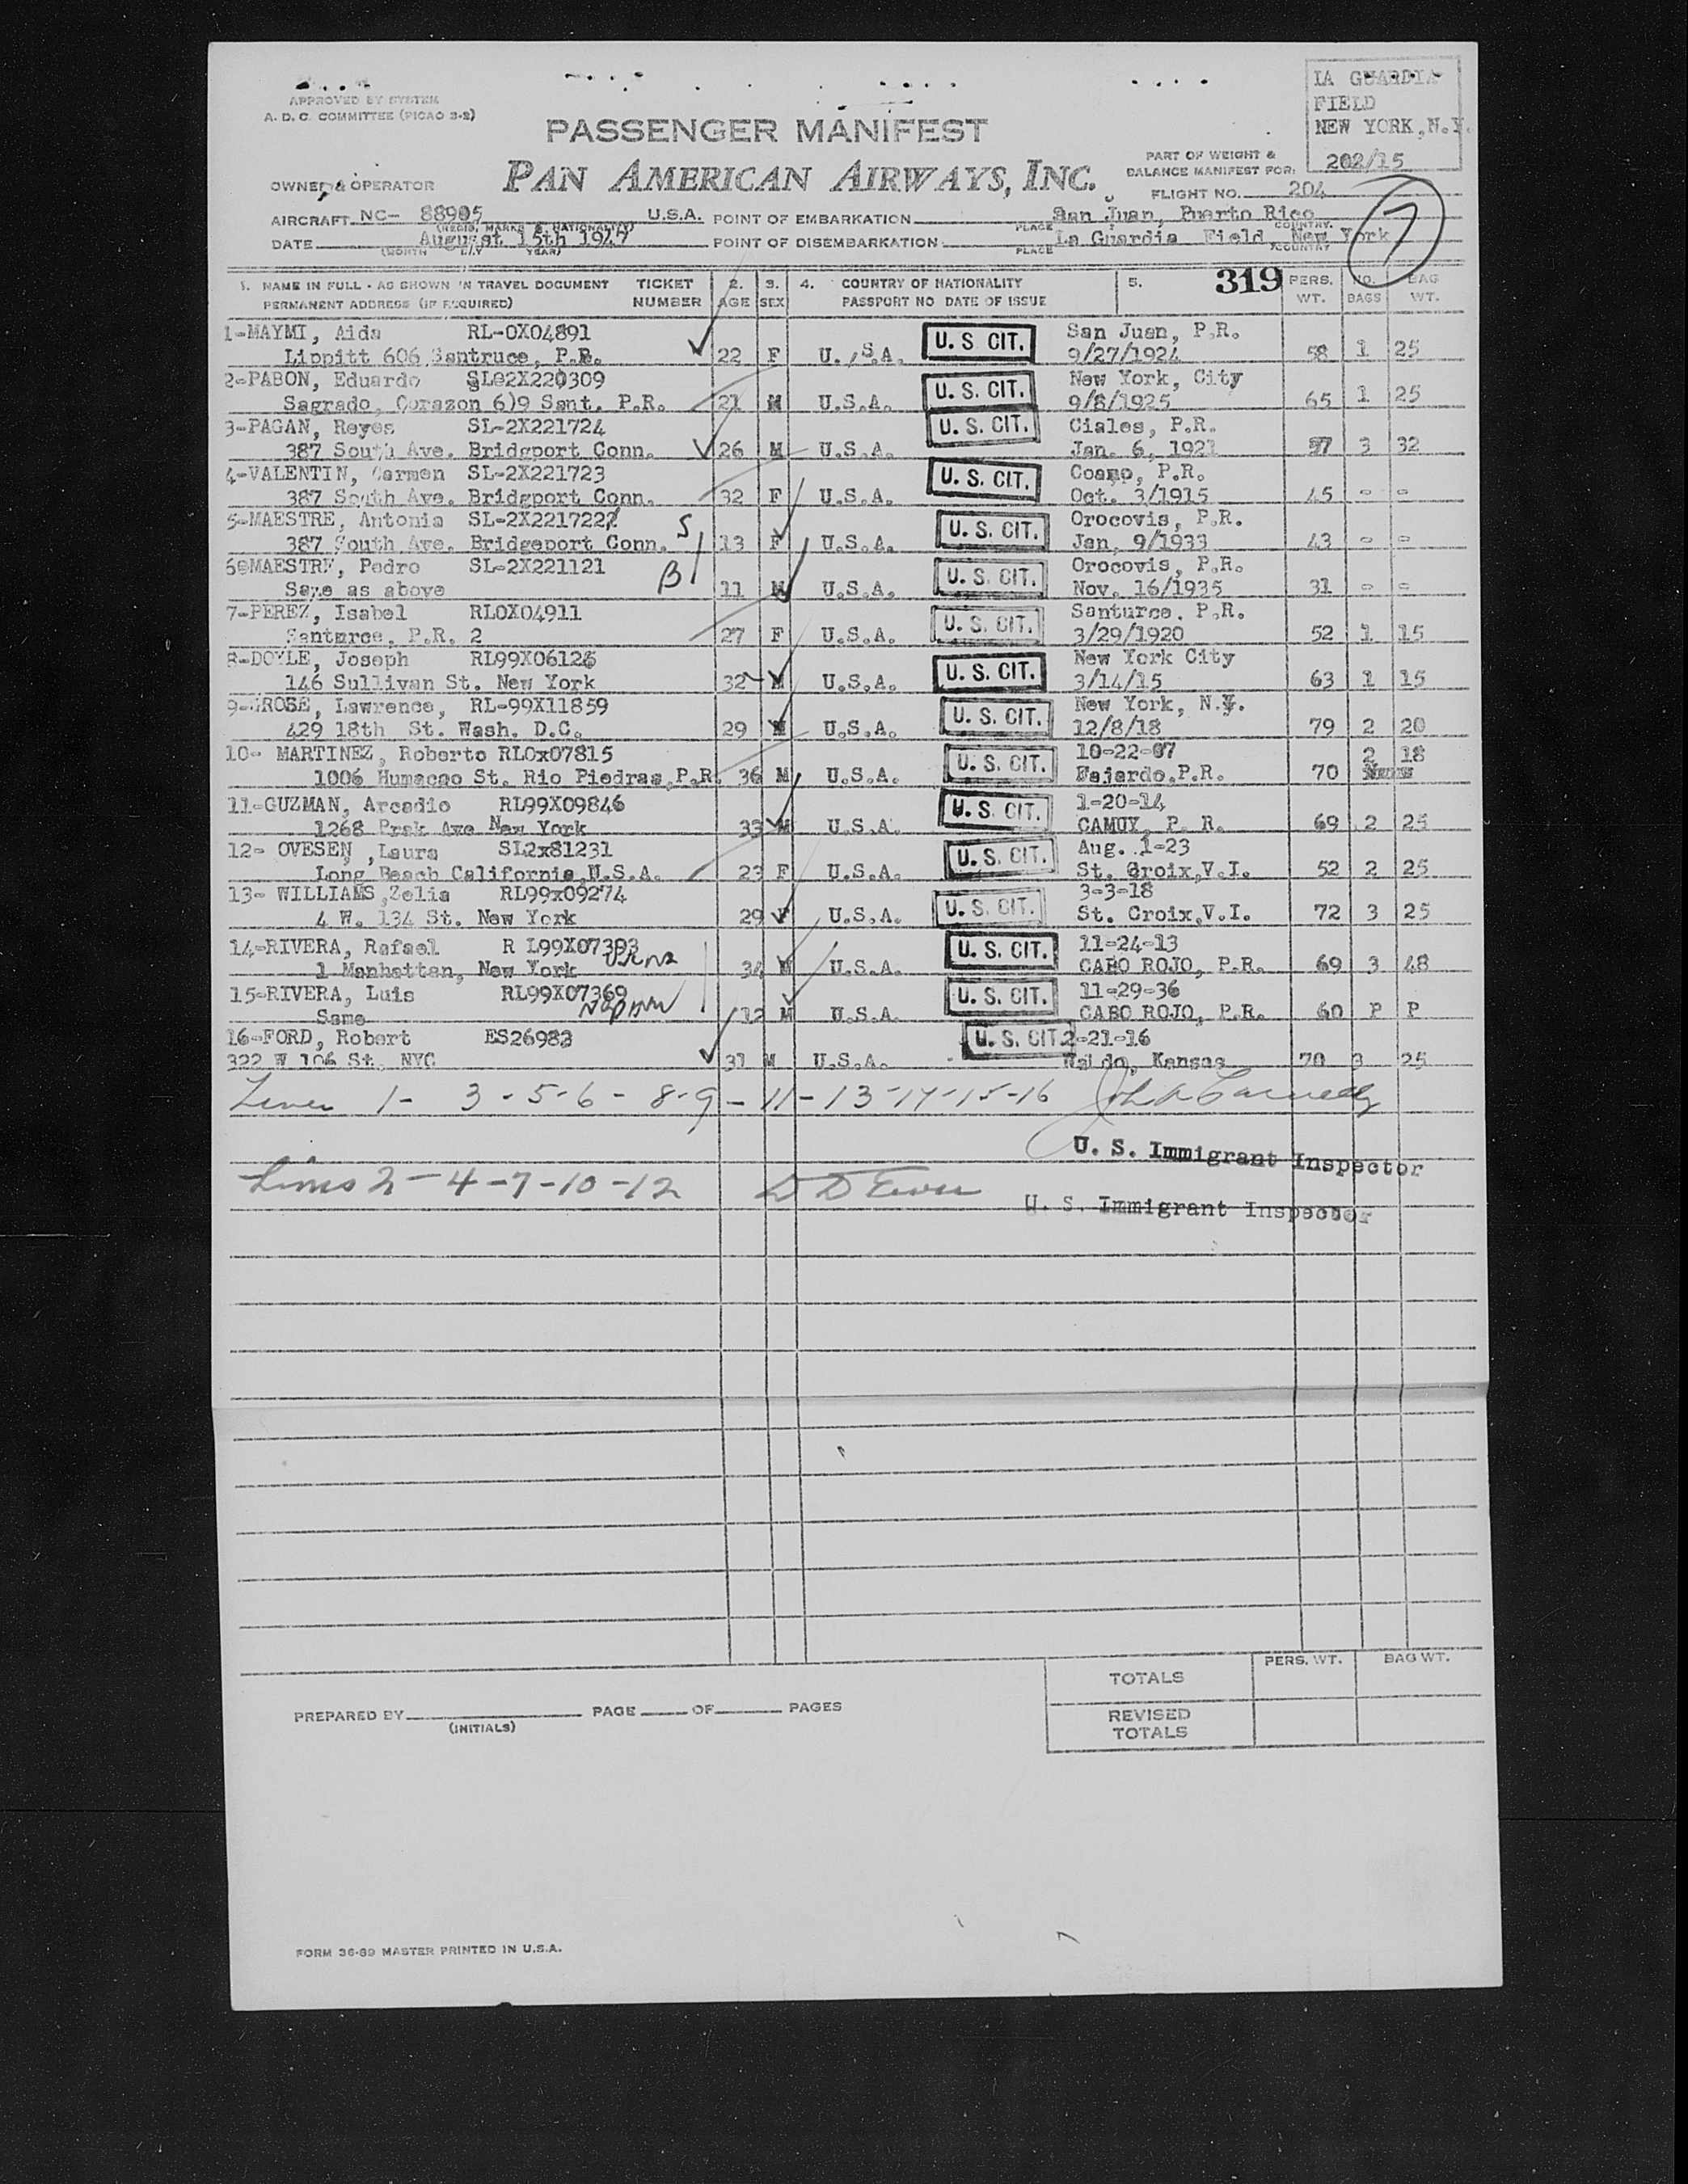 APPROVED BY SYSTEM
A. D. C. COMMITTEE (PICAO 2-2)
LA GUARDIA
FIELD
NEW YORK, N.Y.
202/15
PASSENGER MANIFEST
PAN AMERICAN AIRWAYS, INC.
PART OF WEIGHT &
BALANCE MANIFEST FOR:
OWNER & OPERATOR
FLIGHT NO. 204
AIRCRAFT NC- 88905 U.S.A. POINT OF EMBARKATION San Juan, Puerto Rico
(REGIS. MARKS & NATIONALITY) PLACE COUNTRY
DATE August 15th 1947 POINT OF DISEMBARKATION La Guardia Field New York
(MONTH DAY YEAR) PLACE COUNTRY
7
1. NAME IN FULL - AS SHOWN IN TRAVEL DOCUMENT TICKET 2. 3. 4. COUNTRY OF NATIONALITY 5. 319 PERS. NO. BAG
PERMANENT ADDRESS (IF REQUIRED) NUMBER AGE SEX PASSPORT NO DATE OF ISSUE WT. BAGS WT.
1-MAYMI, Aida RL-0X04891 U. S CIT. San Juan, P.R.
Lippitt 606 Santruce, P.R. 22 F U.S.A. 9/27/1924 58 1 25
2-PABON, Eduardo SL02X220309 U. S. CIT. New York, City
Sagrado, Corazon 6)9 Sant. P.R. 21 M U.S.A. 9/8/1925 65 1 25
3-PAGAN, Reyes SL-2X221724 U. S. CIT. Ciales, P.R.
387 South Ave. Bridgport Conn. 26 M U.S.A. Jan. 6, 1921 97 3 32
4-VALENTIN, Carmen SL-2X221723 U. S. CIT. Coamo, P.R.
387 South Ave. Bridgport Conn. 32 F U.S.A. Oct. 3/1915 45 - -
5-MAESTRE, Antonia SL-2X221722 S U. S. CIT. Orocovis, P.R.
387 South Ave. Bridgeport Conn. 13 F U.S.A. Jan. 9/1933 43 - -
6-MAESTRE, Pedro SL-2X221121 B U. S. CIT. Orocovis, P.R.
Same as above 11 M U.S.A. Nov. 16/1935 31 - -
7-PEREZ, Isabel RL0X04911 U. S. CIT. Santurce, P.R.
Santurce, P.R. 2 27 F U.S.A. 3/29/1920 52 1 15
8-DOYLE, Joseph RL99X06125 U. S. CIT. New York City
146 Sullivan St. New York 32 M U.S.A. 3/14/15 63 1 15
9-GROSE, Lawrence, RL-99X11859 U. S. CIT. New York, N.Y.
429 18th St. Wash. D.C. 29 M U.S.A. 12/8/18 79 2 20
10- MARTINEZ, Roberto RL0x07815 U. S. CIT. 10-22-07 2 18
1006 Humacao St. Rio Piedras,P.R. 36 M U.S.A. Fajardo,P.R. 70
11-GUZMAN, Arcadio RL99X09846 U. S. CIT. 1-20-14
1268 Prak Ave New York 33 M U.S.A. CAMUY, P. R. 69 2 25
12- OVESEN ,Laura SL2x81231 U. S. CIT. Aug. 1-23
Long Beach California,U.S.A. 23 F U.S.A. St. Croix,V.I. 52 2 25
13- WILLIAMS ,Zelia RL99x09274 U. S. CIT. 3-3-18
4 W. 134 St. New York 29 F U.S.A. St. Croix,V.I. 72 3 25
14-RIVERA, Rafael R L99X07393 U. S. CIT. 11-24-13
1 Manhattan, New York 34 M U.S.A. CABO ROJO, P.R. 69 3 48
15-RIVERA, Luis RL99X07369 U. S. CIT. 11-29-36
Same nephew 12 M U.S.A. CABO ROJO, P.R. 60 P P
16-FORD, Robert ES26983 U. S. CIT. 2-21-16
322 W 106 St. NYC 31 M U.S.A. Waldo, Kansas 70 3 25
Lines 1- 3-5-6-8-9-11-13-14-15-16
U. S. Immigrant Inspector
Lines 2-4-7-10-12
U. S. Immigrant Inspector
PERS. WT. BAG WT.
TOTALS
PREPARED BY PAGE OF PAGES
(INITIALS)
REVISED
TOTALS
FORM 36-69 MASTER PRINTED IN U.S.A.